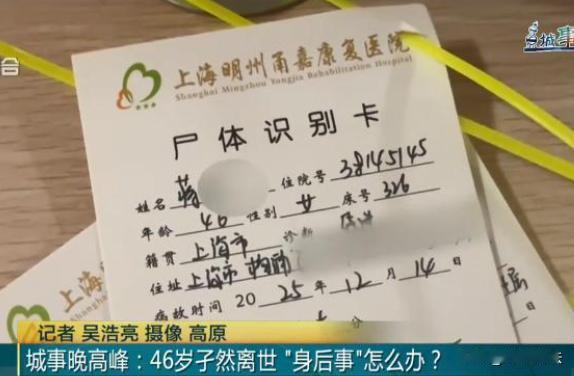 台
城事
上海明州甬嘉康复医院
Shanghai Mingzhou Yongjia Rehabilitation Hospital
尸体识别卡
姓名 蒋 住院号 38145145
年龄 46 性别 女 床号 326
籍贯 上海市 诊断
住址 上海市
病故时间 2025年12月14日
分
记者 吴浩亮 摄像 高原
城事晚高峰：46岁孑然离世 "身后事"怎么办？